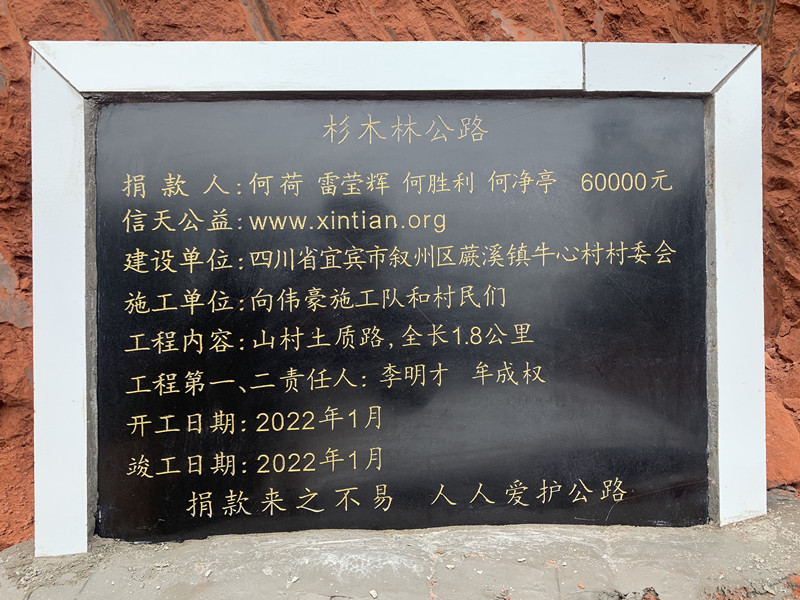 杉木林公路
捐款人:何荷 雷莹辉 何胜利 何净亭 60000元
信天公益:www.xintian.org
建设单位:四川省宜宾市叙州区蕨溪镇牛心村村委会
施工单位:向伟豪施工队和村民们
工程内容:山村土质路,全长1.8公里
工程第一、二责任人: 李明才 牟成权
开工日期:2022年1月
竣工日期:2022年1月
捐款来之不易 人人爱护公路